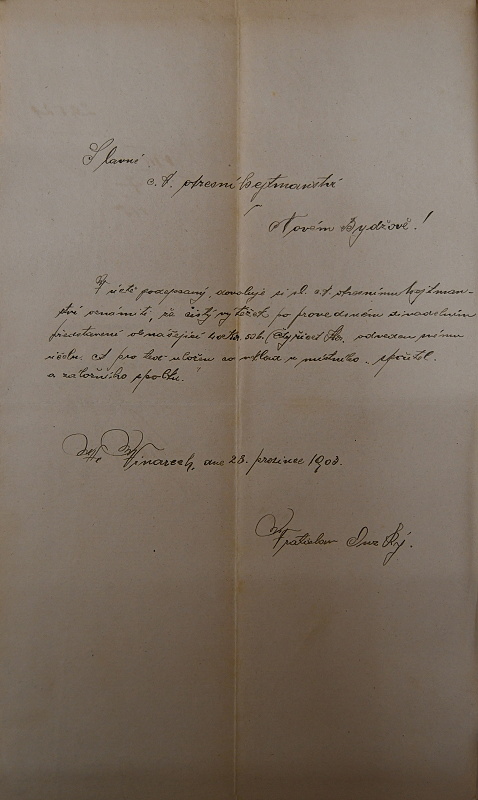 Slavné
c. k. okresní hejtmanství
v
Novém Bydžově!
V úctě podepsaný, dovoluje si sl. c. k. okresnímu hejtman-
ství oznámiti, že čistý výtěžek po provedeném divadelním
představení obnášející 40 kor. 50 h. (čtyřicet odveden svému
účelu. A pro ten uložen co vklad u místního. spořitel.
a záložního spolku.
Ve Vinarech, dne 28. prosince 1903.
Vratislav